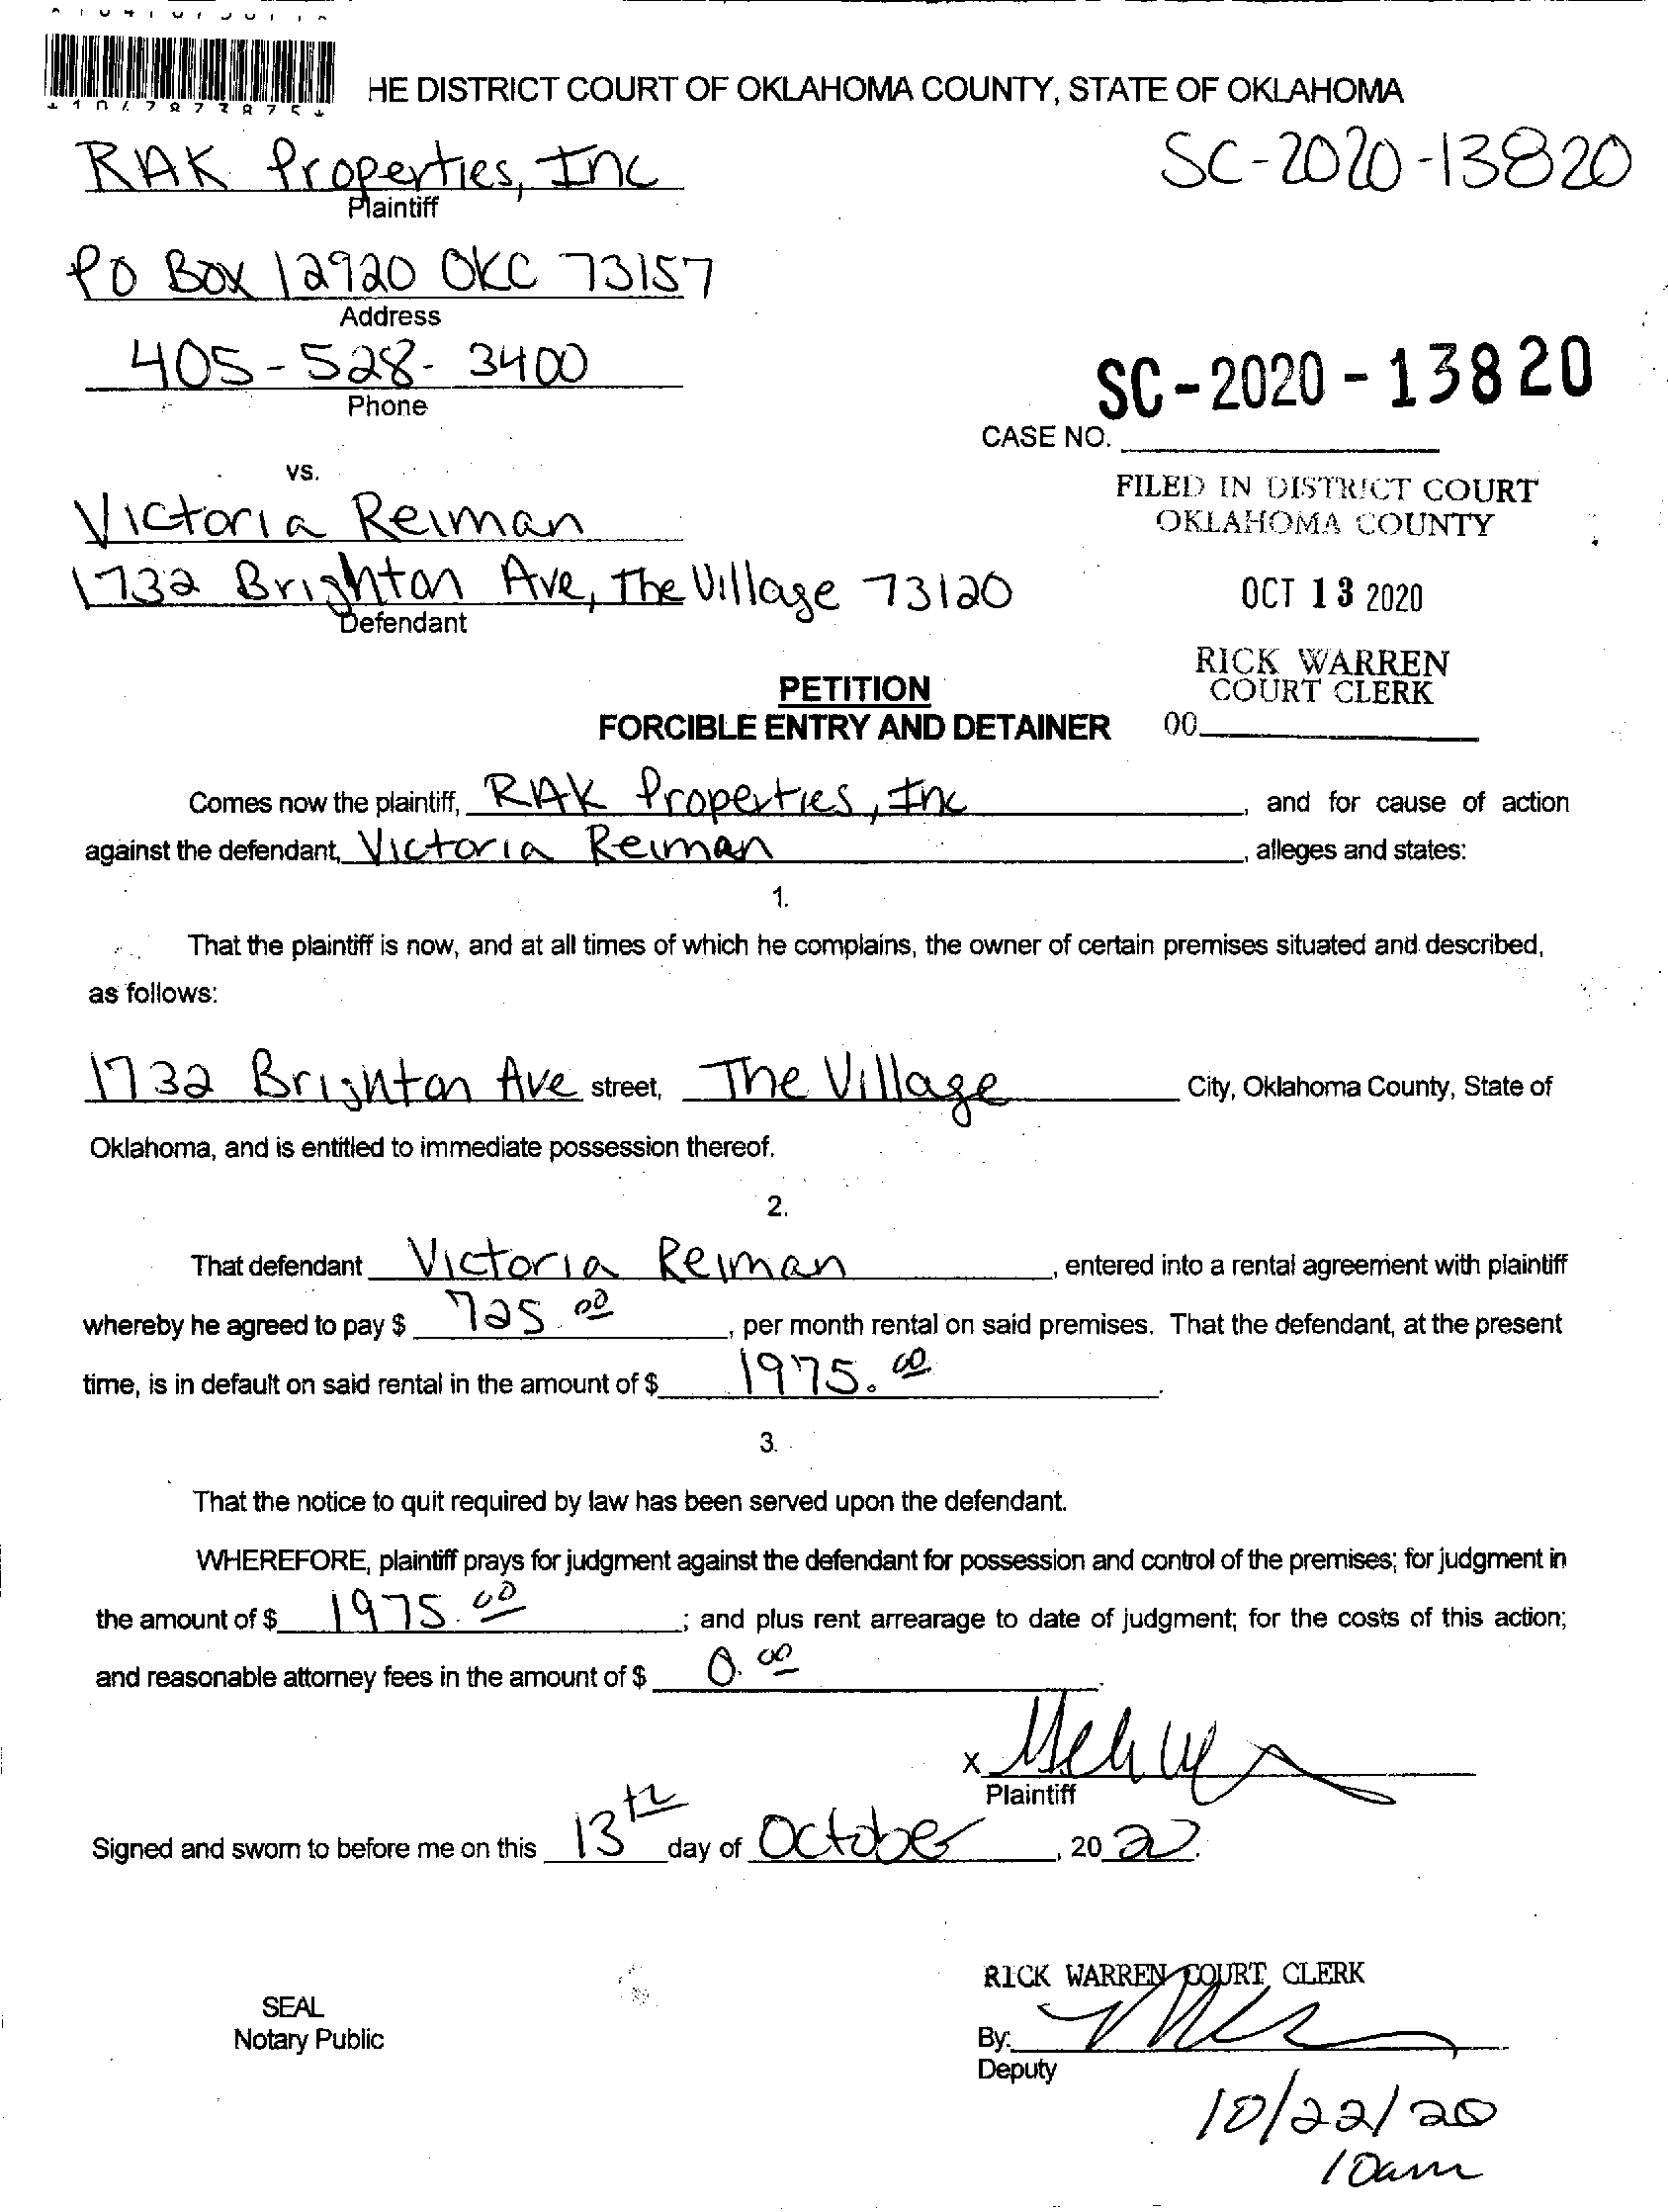 HE DISTRICT COURT OF OKLAHOMA COUNTY, STATE OF OKLAHOMA
RAK Properties, Inc
Plaintiff
SC-2020-13820
PO Box 12920 OKC 73157
Address
405-528-3400
Phone
SC-2020-13820
CASE NO.
vs.
Victoria Reiman
1732 Brighton Ave, The Village 73120
Defendant
FILED IN DISTRICT COURT
OKLAHOMA COUNTY
OCT 13 2020
RICK WARREN
COURT CLERK
00
PETITION
FORCIBLE ENTRY AND DETAINER
Comes now the plaintiff, RAK Properties, Inc, and for cause of action
against the defendant, Victoria Reiman, alleges and states:
1.
That the plaintiff is now, and at all times of which he complains, the owner of certain premises situated and described,
as follows:
1732 Brighton Ave street, The Village City, Oklahoma County, State of
Oklahoma, and is entitled to immediate possession thereof.
2.
That defendant Victoria Reiman, entered into a rental agreement with plaintiff
whereby he agreed to pay $ 725.00, per month rental on said premises. That the defendant, at the present
time, is in default on said rental in the amount of $ 1975.00.
3.
That the notice to quit required by law has been served upon the defendant.
WHEREFORE, plaintiff prays for judgment against the defendant for possession and control of the premises; for judgment in
the amount of $ 1975.00; and plus rent arrearage to date of judgment; for the costs of this action;
and reasonable attorney fees in the amount of $ 0.00.
X
Plaintiff
Signed and sworn to before me on this 13th day of October, 20 20.
RICK WARREN COURT CLERK
SEAL
Notary Public
By:
Deputy
10/22/20
10am